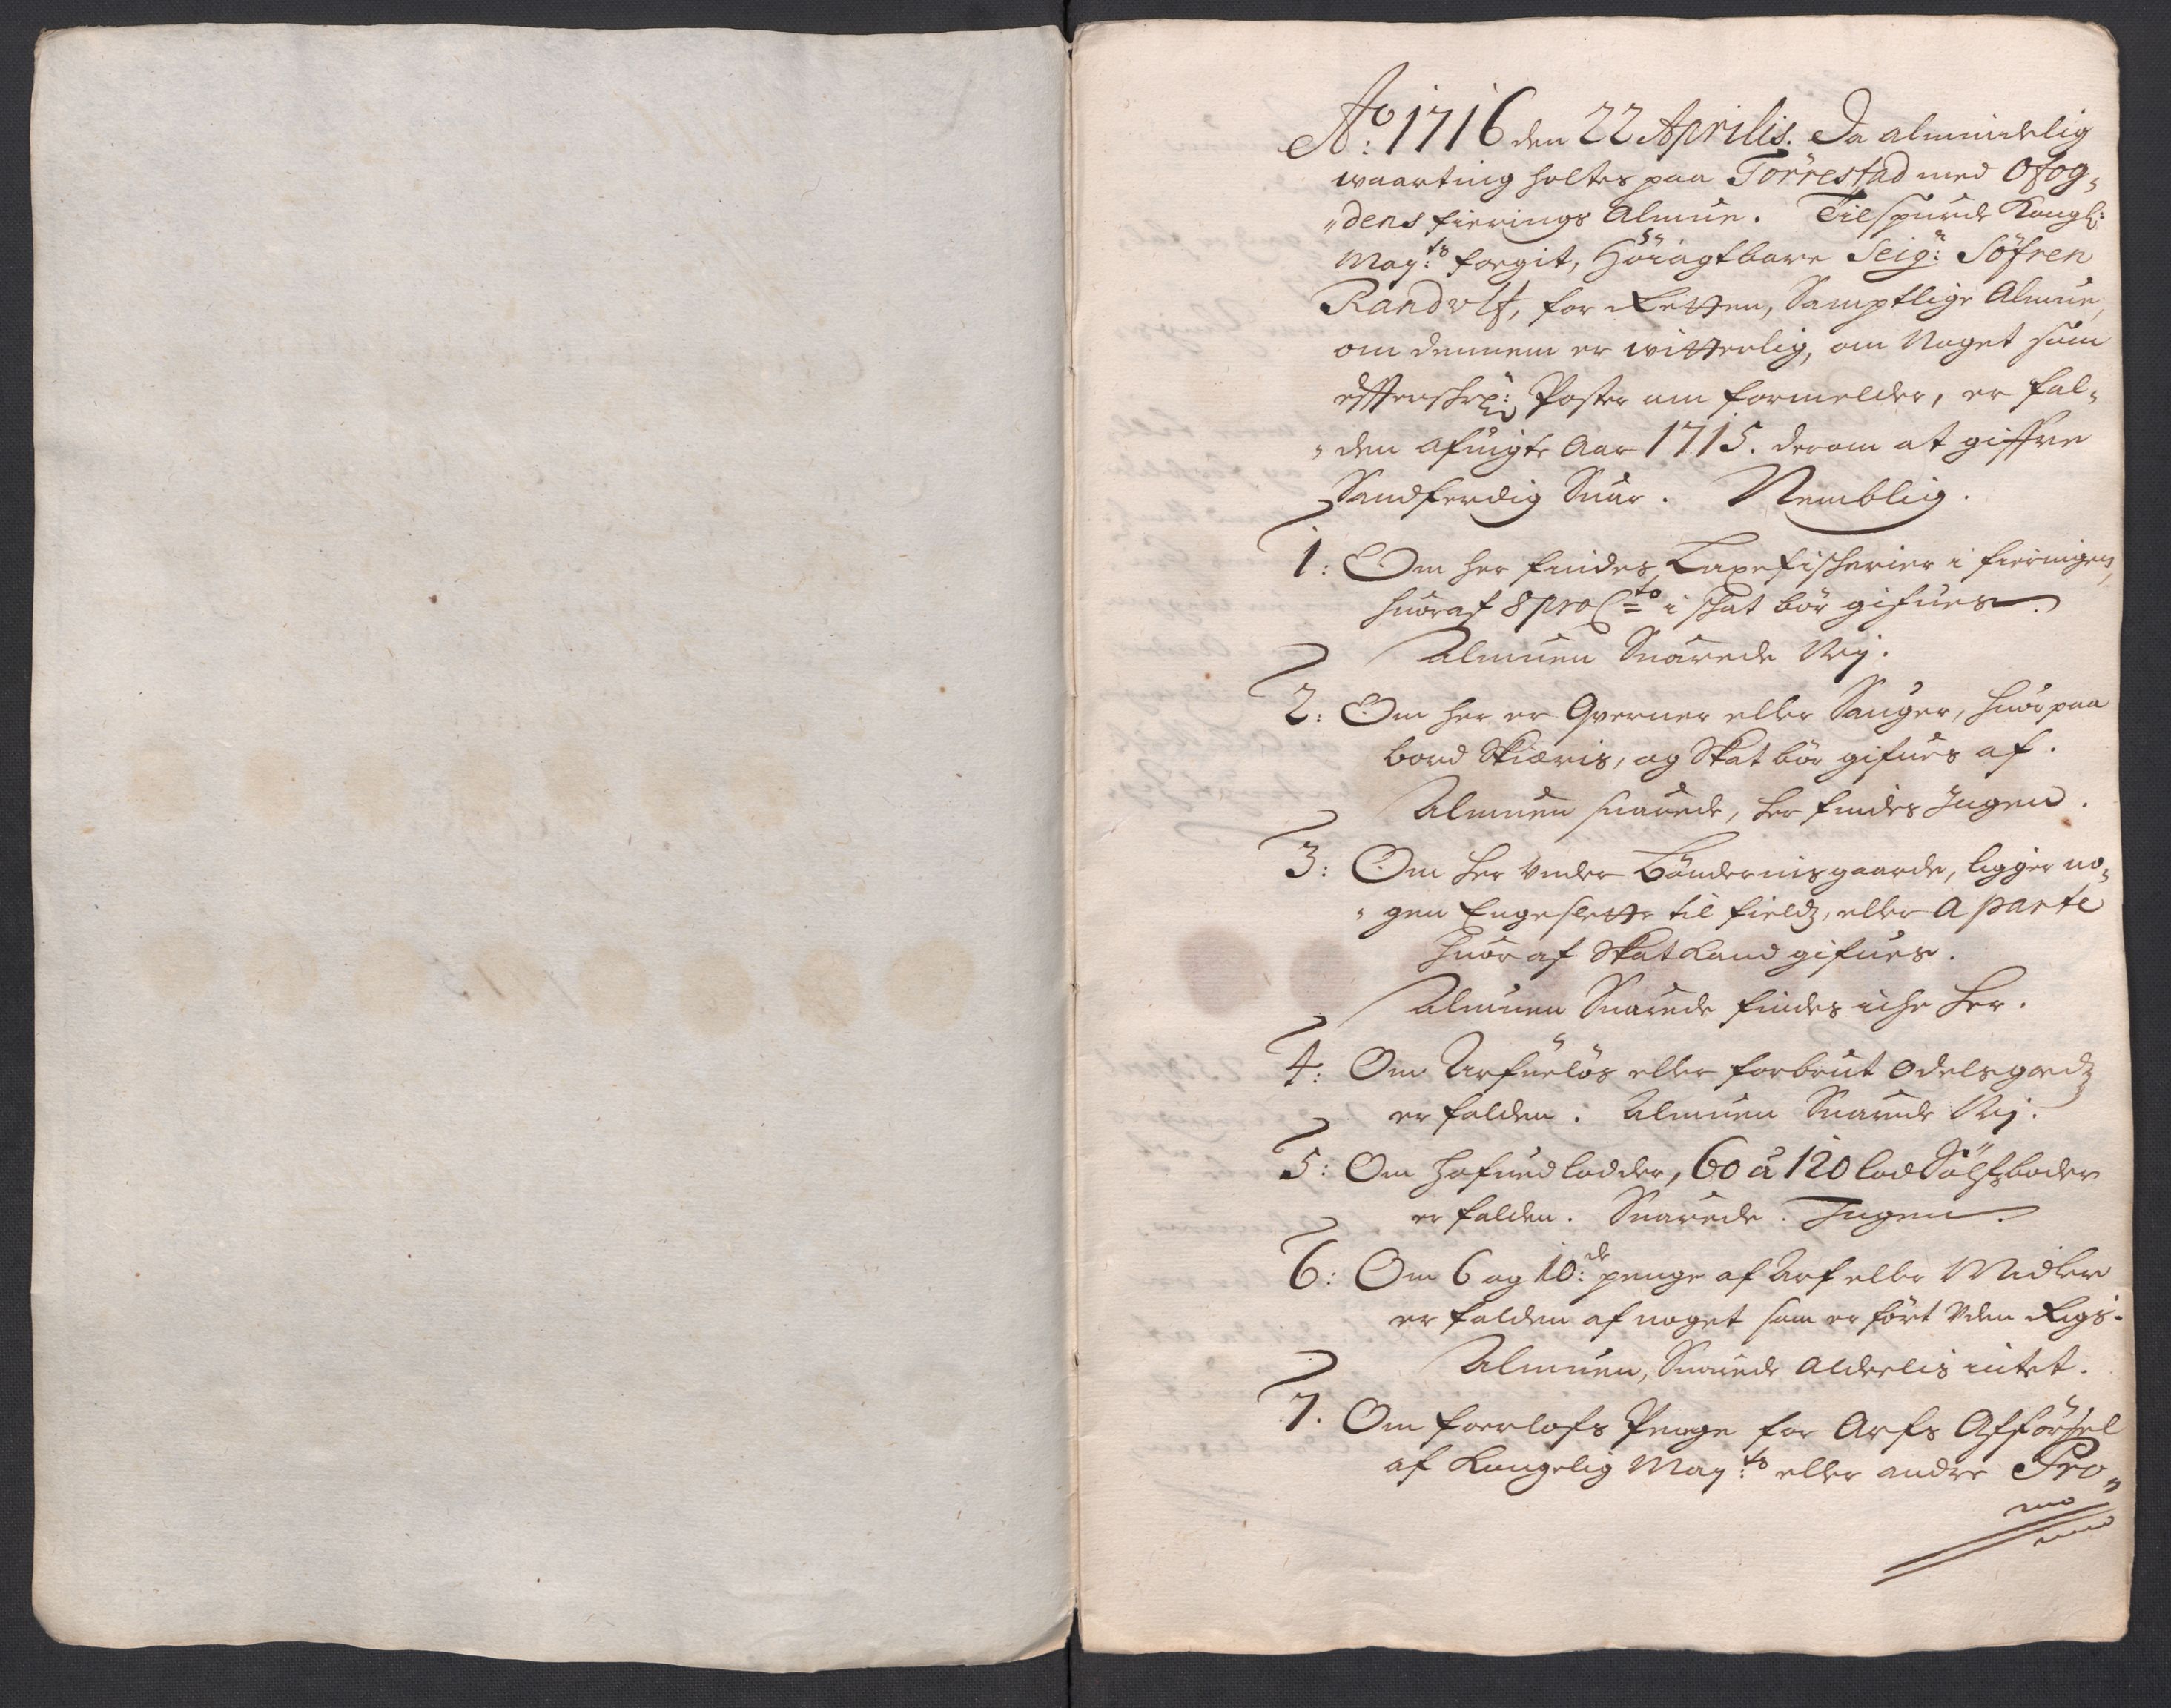 Ao: 1716 den 22 Aprilis. Da almindelig
waarting holtes paa Torrestad med Ofog-
dens fierings Almue. Tilspurde Kongl:
May:ts fogit, Höiagtbare Seigr: Söfren
Randulf, for Retten, Samptlige Almue,
om dennem er witterlig, om Noget som
effterschr: Poster om formelder, er fal-
den afuigte Aar 1715. derom at giffve
Sandferdig Suar. Nemblig.
1: Om her findes Laxefischerier i fieringen,
huoraf 8 pro Cto i schat bör gifues.
Almuen Suarede Nej.
2: Om her er Qverner eller Sauger, huorpaa
bord Skiæris, og Skat bör gifues af.
Almuen suarede, her findes Ingen.
3: Om her under Böndernis gaarde, ligger no-
gen Engeslette til fields, eller a parte
huoraf Skat kand gifues.
Almuen Suarede findes iche her.
4: Om Arfuelös eller forbrut Odelsgods
er falden. Almuen Suarede Nej.
5: Om hofuedlodder, 60 á 120 lod Sölfsboder
er falden. Suarede. Ingen.
6: Om 6 og 10:de penge af Arf eller Midler
er falden af noget som er fört uden Rigs.
Almuen, Suarede Alderlis intet.
7. Om forlofs Penge for Arfs Afförsel
af Kongelig May:ts eller andre Pro-